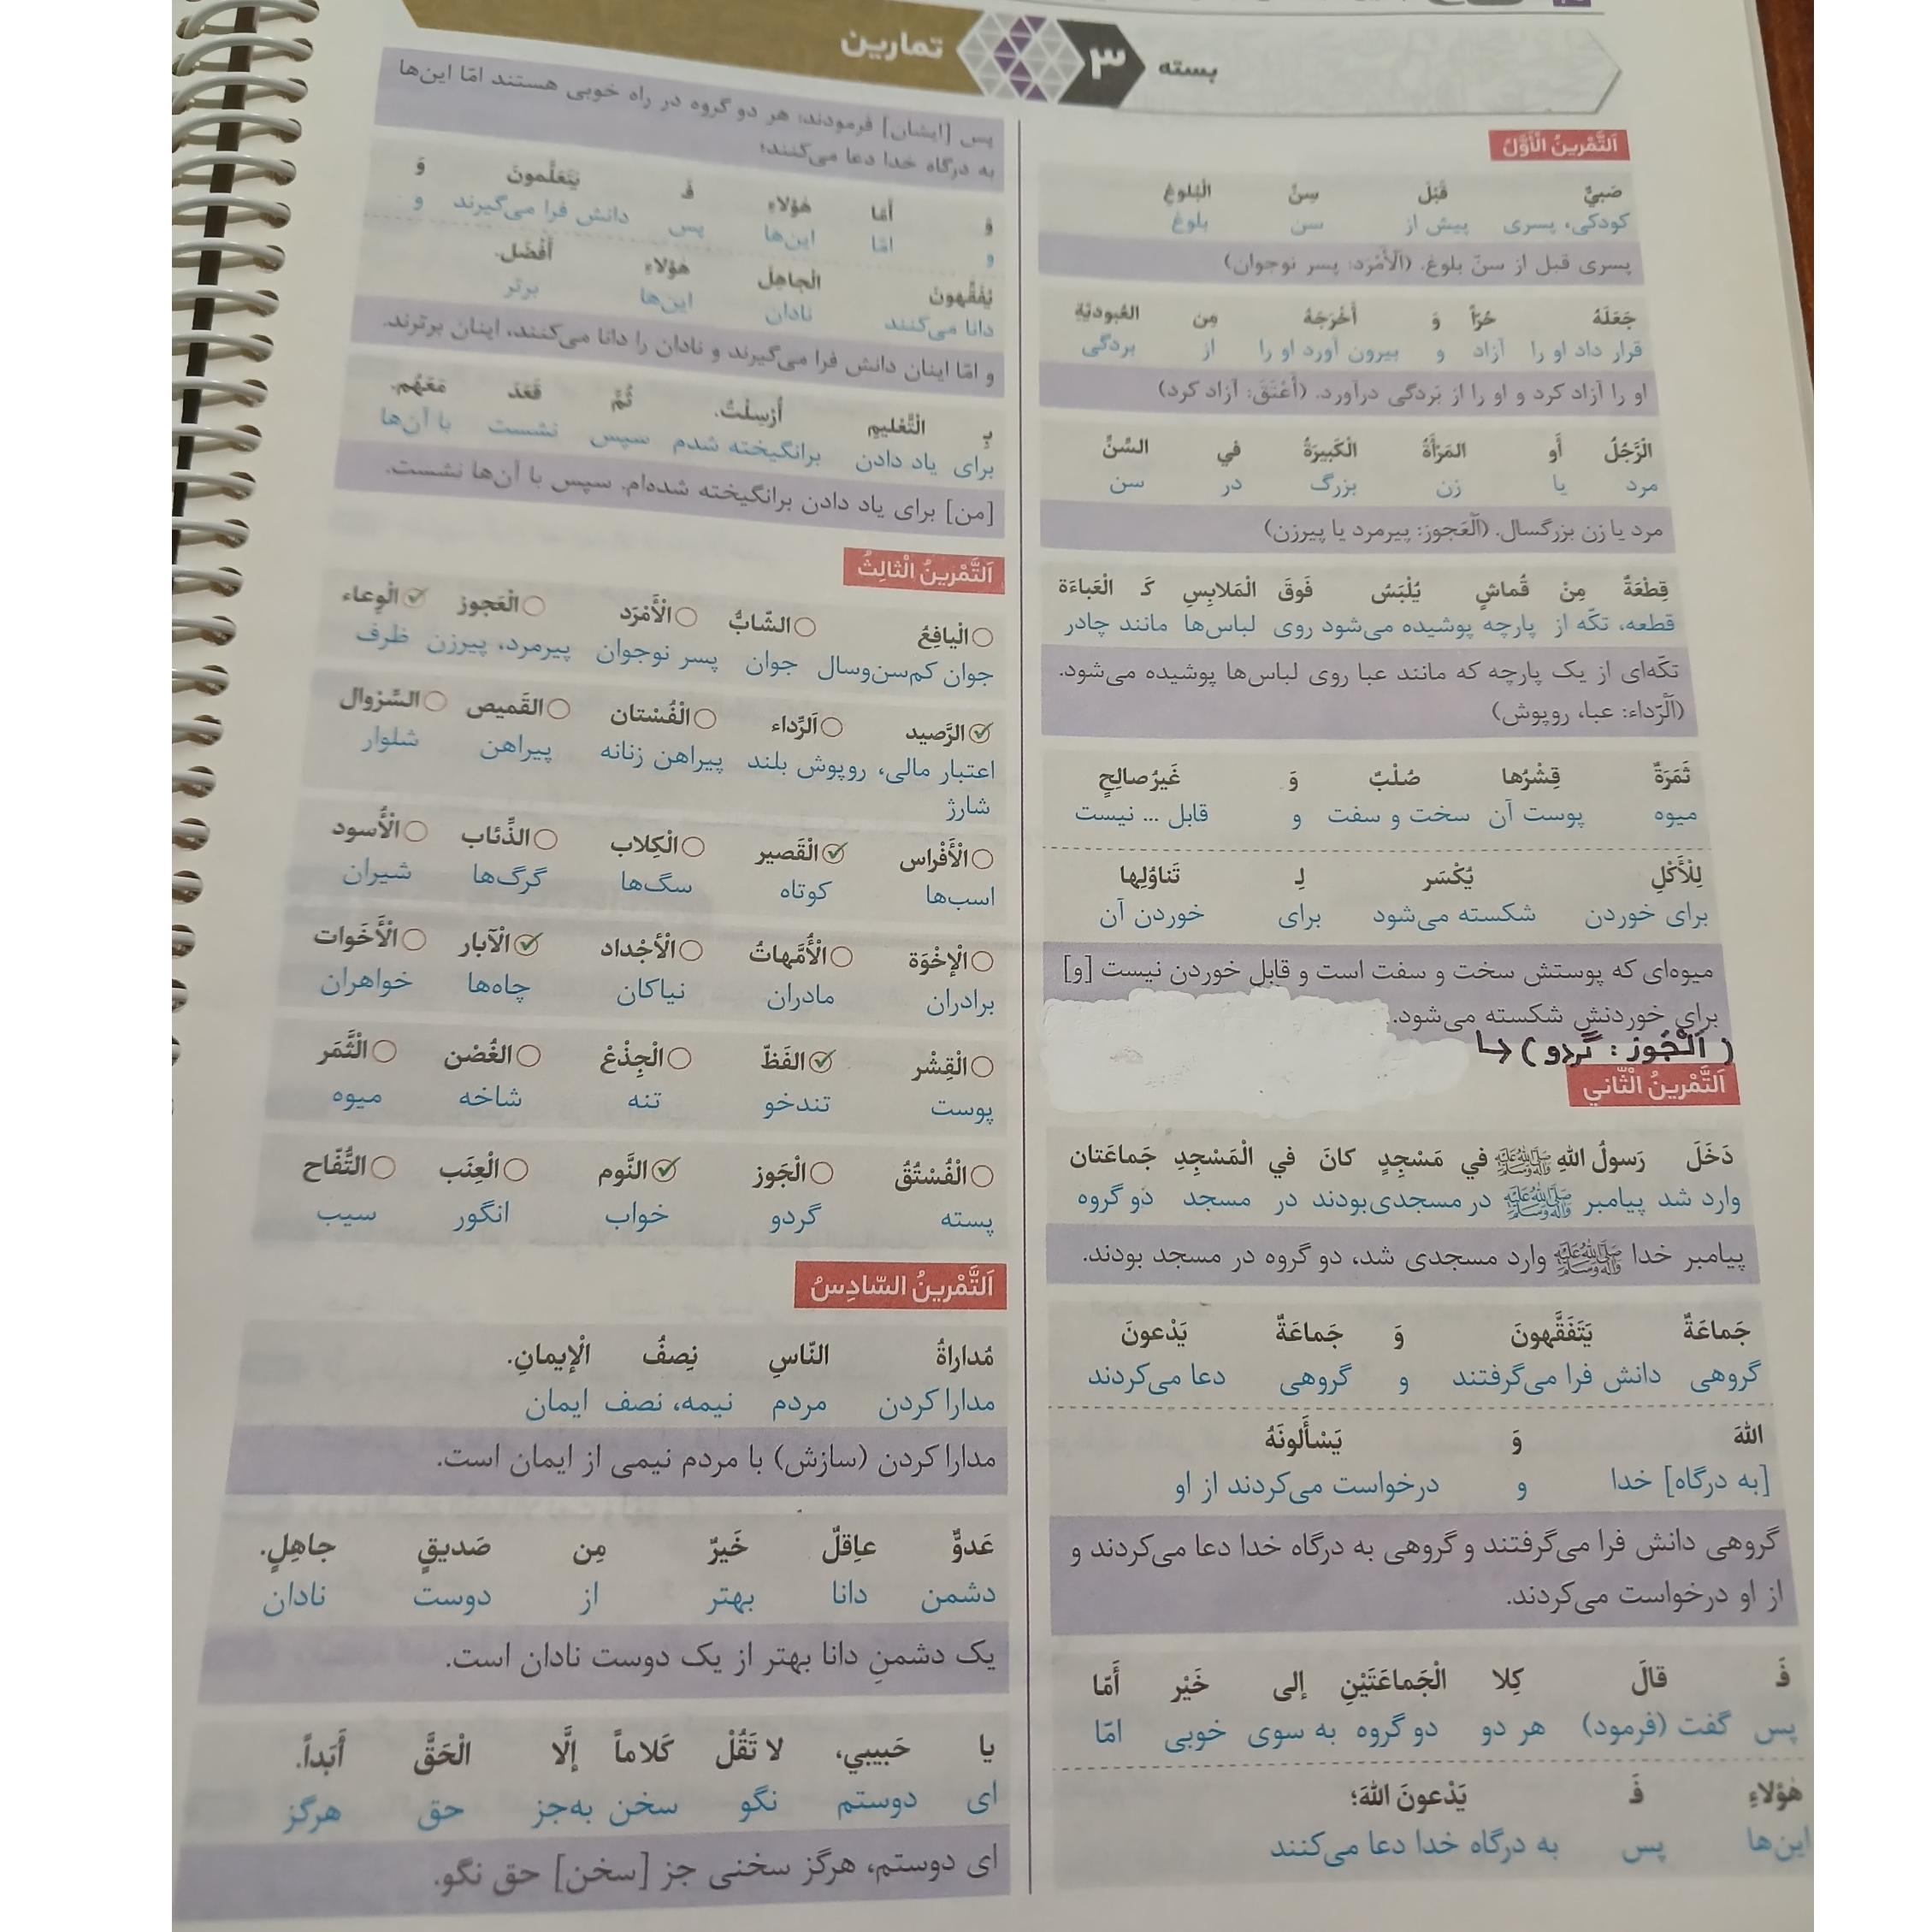 بسته ۳ تمارین
اَلتَّمْرينُ الْأَوَّلُ
صَبيٌّ قَبْلَ سِنِّ الْبُلوغِ
کودکی، پسری پیش از سن بلوغ
پسری قبل از سنّ بلوغ. (اَلْأَمْرَد: پسر نوجوان)
جَعَلَهُ حُرّاً وَ أَخْرَجَهُ مِن العُبوديَّةِ
قرار داد او را آزاد و بیرون آورد او را از بردگی
او را آزاد کرد و او را از بَردگی درآورد. (أَعْتَقَ: آزاد کرد)
الْرَّجُلُ أَو المَرْأَةُ الْكَبيرَةُ في السِّنِّ
مرد یا زن بزرگ در سن
مرد یا زن بزرگسال. (اَلْعَجوز: پیرمرد یا پیرزن)
قِطْعَةٌ مِنْ قُماشٍ يُلْبَسُ فَوقَ الْمَلابِسِ كَـ الْعَباءَة
قطعه، تکّه از پارچه پوشیده می‌شود روی لباس‌ها مانند چادر
تکّه‌ای از یک پارچه که مانند عبا روی لباس‌ها پوشیده می‌شود.
(اَلْرِّداء: عبا، روپوش)
ثَمَرَةٌ قِشْرُها صُلْبٌ وَ غَيرُ صالِحٍ
میوه پوست آن سخت و سفت و قابل ... نیست
لِلْأَكْلِ يُكْسَر لِـ تَناوُلِها
برای خوردن شکسته می‌شود برای خوردن آن
میوه‌ای که پوستش سخت و سفت است و قابل خوردن نیست [و]
برای خوردنش شکسته می‌شود.
(اَلْجَوز : گردو)
اَلتَّمْرينُ الْثّاني
دَخَلَ رَسولُ اللهِ ﷺ في مَسْجِدٍ كانَ في الْمَسْجِدِ جَماعَتان
وارد شد پیامبر ﷺ در مسجدی بودند در مسجد دو گروه
پیامبر خدا ﷺ وارد مسجدی شد، دو گروه در مسجد بودند.
جَماعَةٌ يَتَفَقَّهونَ وَ جَماعَةٌ يَدْعونَ
گروهی دانش فرا می‌گرفتند و گروهی دعا می‌کردند
اللهَ وَ يَسْأَلونَهُ
[به درگاه] خدا و درخواست می‌کردند از او
گروهی دانش فرا می‌گرفتند و گروهی به درگاه خدا دعا می‌کردند و
از او درخواست می‌کردند.
فَـ قالَ كِلا الْجَماعَتَيْنِ إلى خَيْر أَمّا
پس گفت (فرمود) هر دو دو گروه به سوی خوبی امّا
هٰؤلاءِ فَـ يَدْعونَ اللهَ؛
این‌ها پس به درگاه خدا دعا می‌کنند
پس [ایشان] فرمودند: هر دو گروه در راه خوبی هستند امّا این‌ها
به درگاه خدا دعا می‌کنند؛
وَ أَمّا هٰؤلاءِ فَـ يَتَعَلَّمونَ وَ
و امّا این‌ها پس دانش فرا می‌گیرند و
يُفَقِّهونَ الْجاهِلَ هٰؤلاءِ أَفْضَل.
دانا می‌کنند نادان این‌ها برتر
و امّا اینان دانش فرا می‌گیرند و نادان را دانا می‌کنند، اینان برترند.
بِـ الْتَّعْليمِ أُرْسِلْتُ. ثُمَّ قَعَدَ مَعَهُم.
برای یاد دادن برانگیخته شدم سپس نشست با آن‌ها
[من] برای یاد دادن برانگیخته شده‌ام. سپس با آن‌ها نشست.
اَلتَّمْرينُ الْثالِثُ
الْيافِعُ الشّابُّ الْأَمْرَد الْعَجوز الْوِعاء
جوان کم‌سن‌وسال جوان پسر نوجوان پیرمرد، پیرزن ظرف
الرَّصيد اَلرِّداء الْفُسْتان القَميص السِّرْوال
اعتبار مالی، روپوش بلند پیراهن زنانه پیراهن شلوار
شارژ
الْأَفْراس الْقَصير الْكِلاب الذِّئاب الْأُسود
اسب‌ها کوتاه سگ‌ها گرگ‌ها شیران
الْإخْوَة الْأُمَّهاتُ الْأَجْداد الْآبار الْأَخَوات
برادران مادران نیاکان چاه‌ها خواهران
الْقِشْر الفَظّ الْجِذْعْ الغُصْن الثَّمَر
پوست تندخو تنه شاخه میوه
الْفُسْتُقُ الْجَوز النَّوم الْعِنَب التُّفّاح
پسته گردو خواب انگور سیب
اَلتَّمْرينُ السّادِسُ
مُداراةُ النّاسِ نِصفُ الْإيمانِ.
مدارا کردن مردم نیمه، نصف ایمان
مدارا کردن (سازش) با مردم نیمی از ایمان است.
عَدوٌّ عاقِلٌ خَيرٌ مِن صَديقٍ جاهِلٍ.
دشمن دانا بهتر از دوست نادان
یک دشمنِ دانا بهتر از یک دوست نادان است.
يا حَبيبي، لا تَقُلْ كَلاماً إلَّا الْحَقَّ أَبَداً.
ای دوستم نگو سخن به‌جز حق هرگز
ای دوستم، هرگز سخنی جز [سخن] حق نگو.